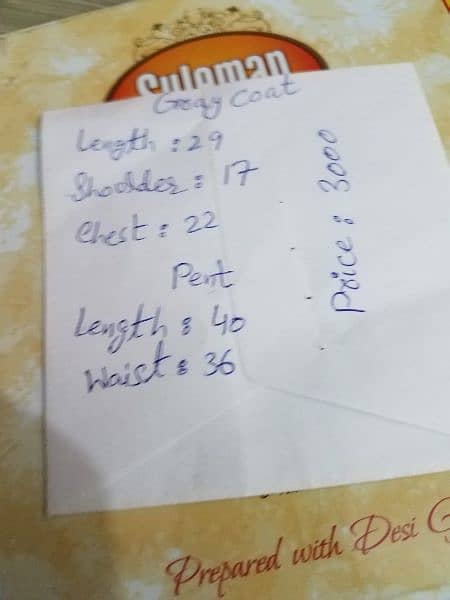 Suleman
Gray Coat
Length : 29
Sholder : 17
Chest : 22
Pent
Length : 40
Waist : 36
Price : 3000
Prepared with Desi